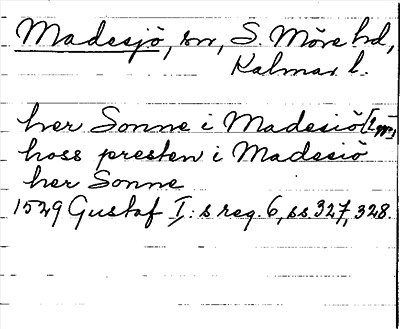 Madesjö, sn, S. Möre hd,
Kalmar l.
her Sonne i Madesiö [2 ggr]
hoss presten i Madesiö
her Sonne
1529 Gustaf I:s reg. 6, ss. 327, 328.